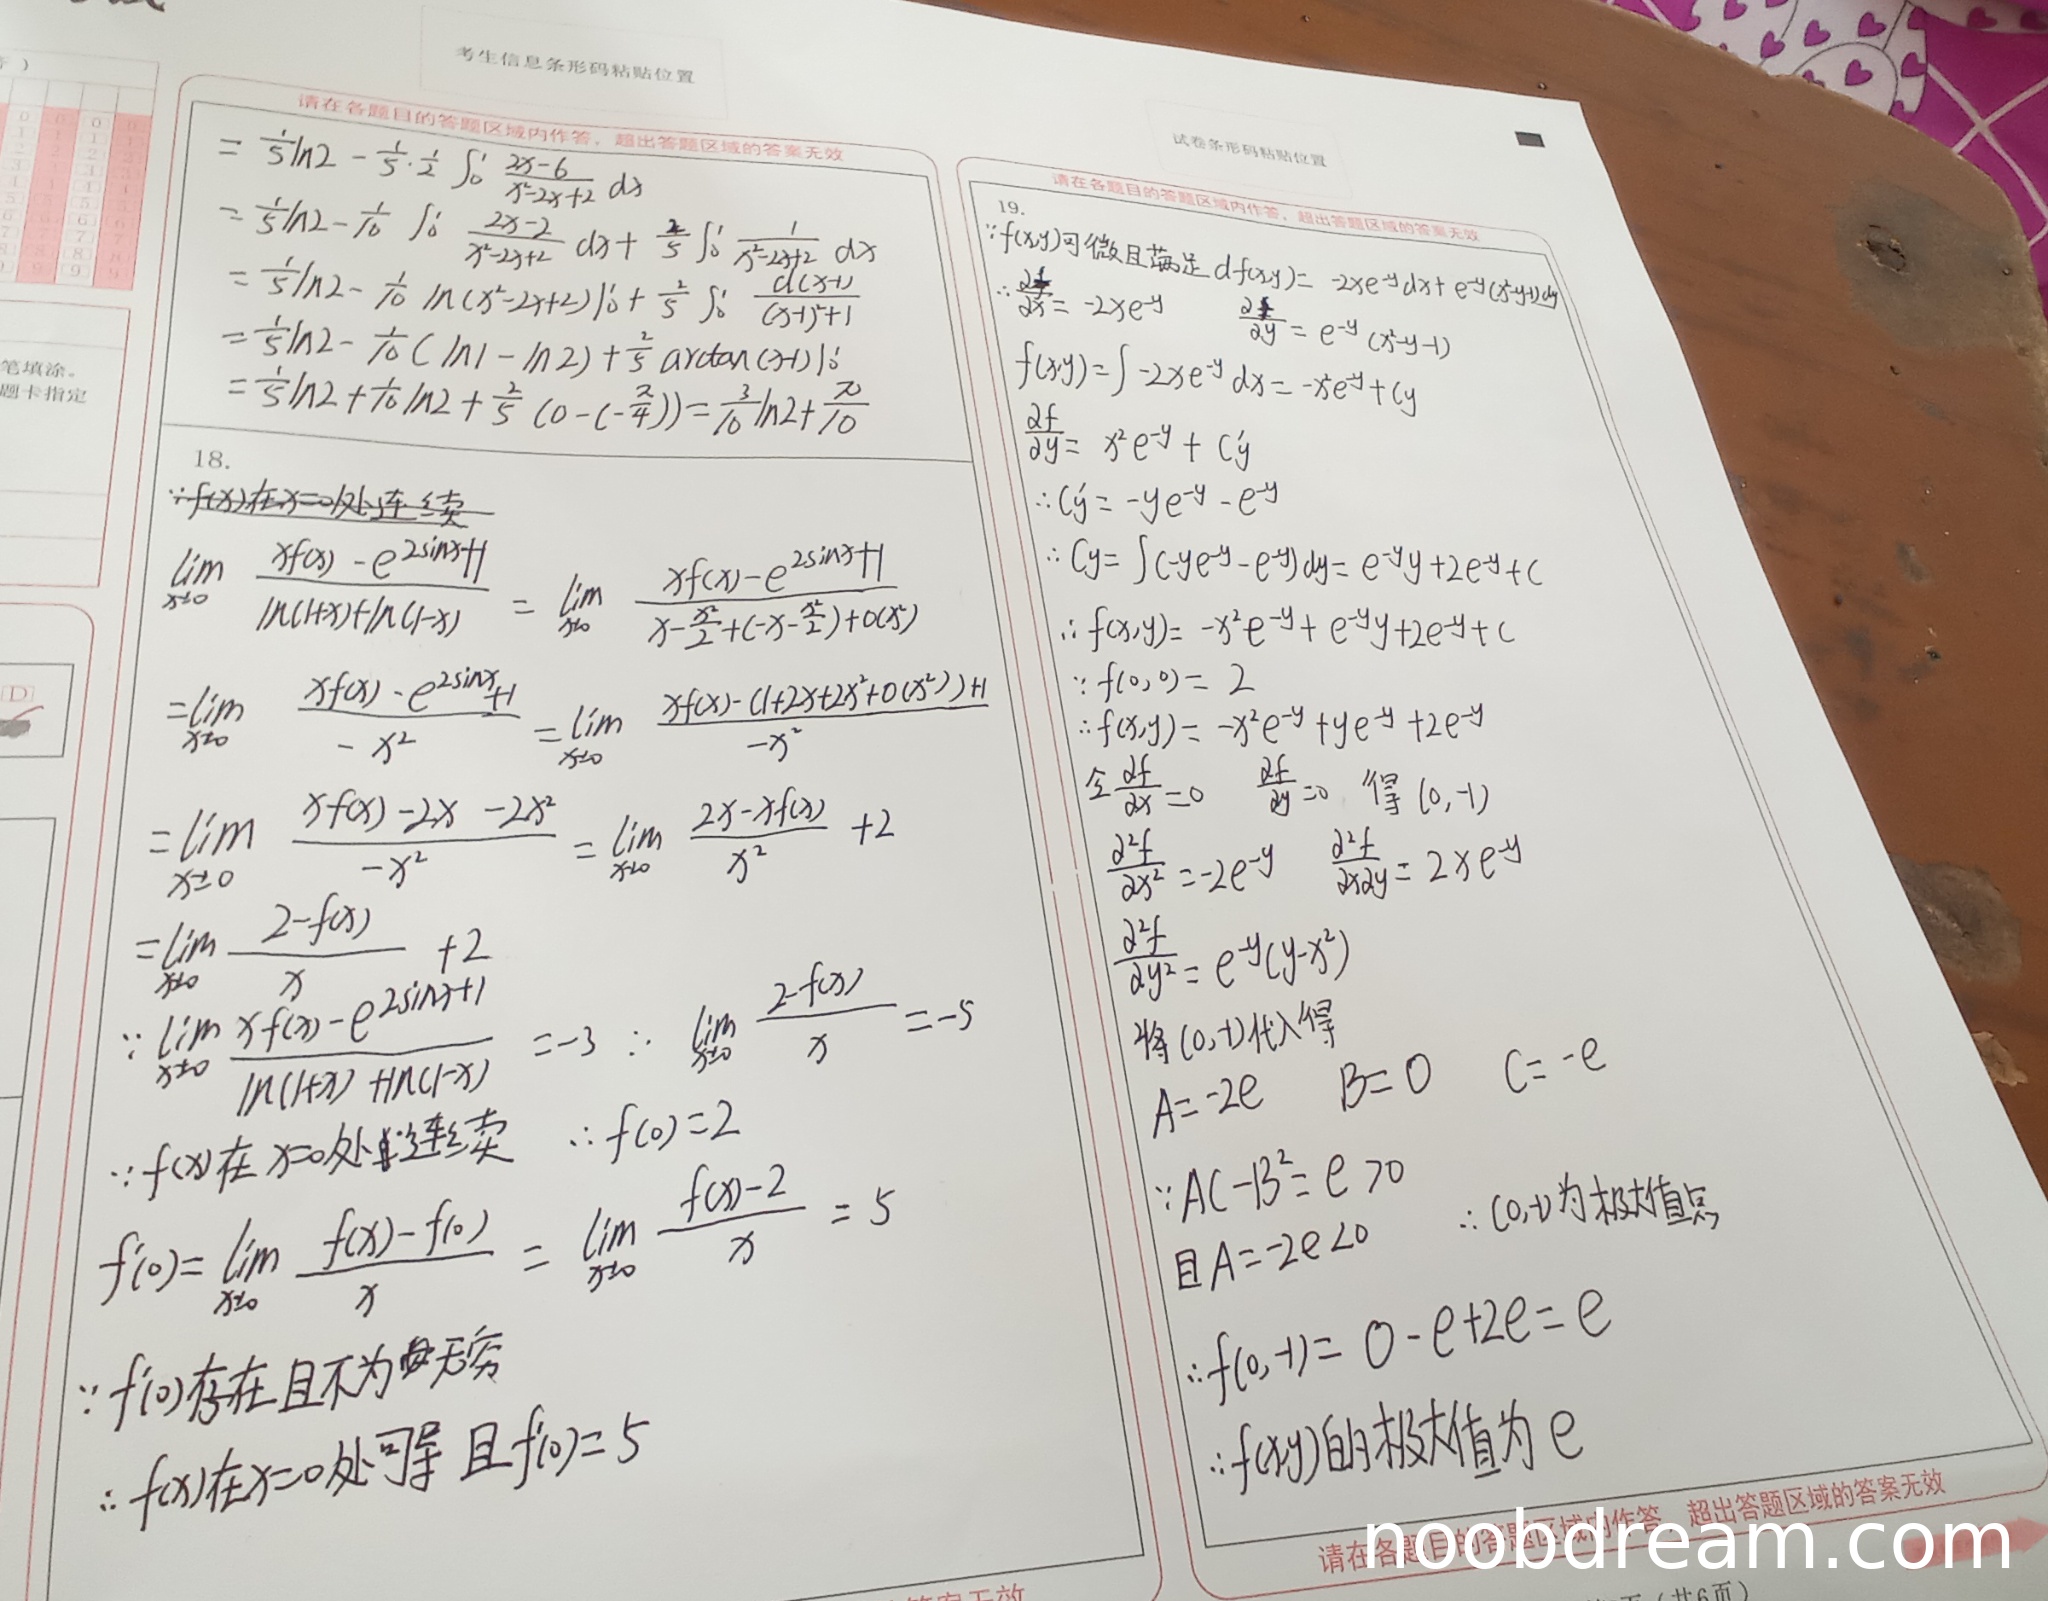 考生信息条形码粘贴位置
请在各题目的答题区域内作答，超出答题区域的答案无效
= 1/5 ln2 - 1/5·1/2 ∫₀¹ (2x-6)/(x²-2x+2) dx
= 1/5 ln2 - 1/10 ∫₀¹ (2x-2)/(x²-2x+2) dx + 2/5 ∫₀¹ 1/(x²-2x+2) dx
= 1/5 ln2 - 1/10 ln(x²-2x+2)|₀¹ + 2/5 ∫₀¹ d(x-1)/((x-1)²+1)
= 1/5 ln2 - 1/10 (ln1 - ln2) + 2/5 arctan(x-1)|₀¹
= 1/5 ln2 + 1/10 ln2 + 2/5 (0-(-π/4)) = 3/10 ln2 + π/10
18.
∵f(x)在x=0处连续
lim x→0 (xf(x) - e^(2sinx)+1)/(ln(1+x)+ln(1-x)) = lim x→0 (xf(x) - e^(2sinx)+1)/(x - x²/2 + (-x - x²/2) + o(x²))
= lim x→0 (xf(x) - e^(2sinx)+1)/(-x²) = lim x→0 (xf(x) - (1+2x+2x²+o(x²))+1)/(-x²)
= lim x→0 (xf(x) - 2x - 2x²)/(-x²) = lim x→0 (2x - xf(x))/x² + 2
= lim x→0 (2-f(x))/x + 2
∵ lim x→0 (xf(x) - e^(2sinx)+1)/(ln(1+x)+ln(1-x)) = -3 ∴ lim x→0 (2-f(x))/x = -5
∵ f(x)在x=0处连续 ∴ f(0)=2
f'(0) = lim x→0 (f(x)-f(0))/x = lim x→0 (f(x)-2)/x = 5
∵ f'(0)存在且不为无穷
∴ f(x)在x=0处可导 且f'(0)=5
试卷条形码粘贴位置
请在各题目的答题区域内作答，超出答题区域的答案无效
19.
∵f(x,y)可微且满足df(x,y)= -2xe^(-y)dx + e^(-y)(x²-y-1)dy
∴ ∂f/∂x = -2xe^(-y) ∂f/∂y = e^(-y)(x²-y-1)
f(x,y) = ∫-2xe^(-y)dx = -x²e^(-y) + Cy
∂f/∂y = x²e^(-y) + C'y
∴C'y = -ye^(-y) - e^(-y)
∴ Cy = ∫(-ye^(-y) - e^(-y))dy = e^(-y)y + 2e^(-y) + C
∴ f(x,y) = -x²e^(-y) + e^(-y)y + 2e^(-y) + C
∵ f(0,0) = 2
∴ f(x,y) = -x²e^(-y) + ye^(-y) + 2e^(-y)
令 ∂f/∂x = 0 ∂f/∂y = 0 得 (0,-1)
∂²f/∂x² = -2e^(-y) ∂²f/∂x∂y = 2xe^(-y)
∂²f/∂y² = e^(-y)(y-x²)
将(0,-1)代入得
A = -2e B = 0 C = -e
∵ AC-B² = e > 0
且A = -2e < 0 ∴ (0,-1)为极大值点
∴ f(0,-1) = 0 - e + 2e = e
∴ f(x,y)的极大值为e
请在各题目的答题区域内作答，超出答题区域的答案无效
noobdream.com
笔填涂。
题卡指定
[D]
页（共6页）